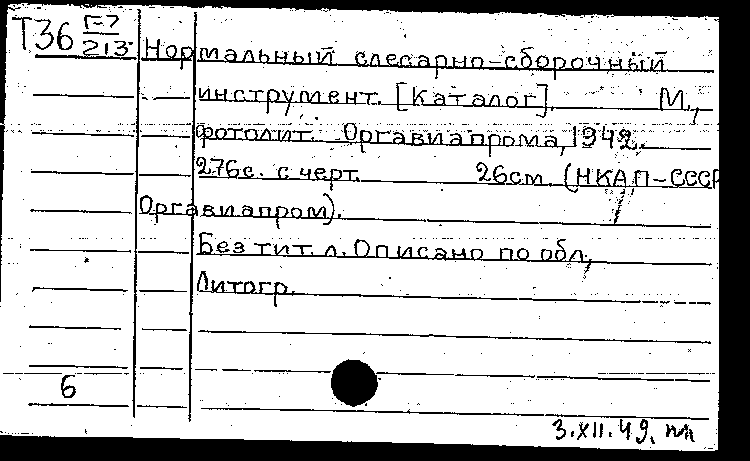 Т36 Г-7
213
Нормальный слесарно-сборочный
инструмент. [Каталог]. М.,
фотолит. Оргавиапрома, 1942.
276с. с черт. 26см. (НКАП-СССР
Оргавиапром).
Без тит. л. Описано по обл.,
Литогр.
6
3.XII.49.